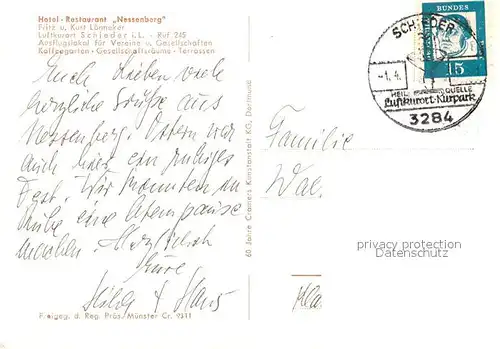 Hotel - Restaurant „Nessenberg"
Fritz u. Kurt Lönneker
Luftkurort Schieder i. L. - Ruf 245
Ausflugslokal für Vereine u. Gesellschaften
Kaffeegarten - Gesellschaftsräume - Terrassen
Euch Lieben viele
herzliche Grüße aus
Nessenberg. Ostern war
auch hier ein ruhiges
Fest. Wir konnten in
Ruhe eine Atempause
machen. Herzlichst
Eure
Hilde + Hans
F. eigeg. d. Reg. Präs. Münster Cr. 9311
60 Jahre Cramers Kunstanstalt KG, Dortmund
SCHIEDER
-1.4.
HEIL QUELLE
Luftkurort-Kurpark
3284
BUNDES
15
Familie
Wal
privacy protection
Datenschutz